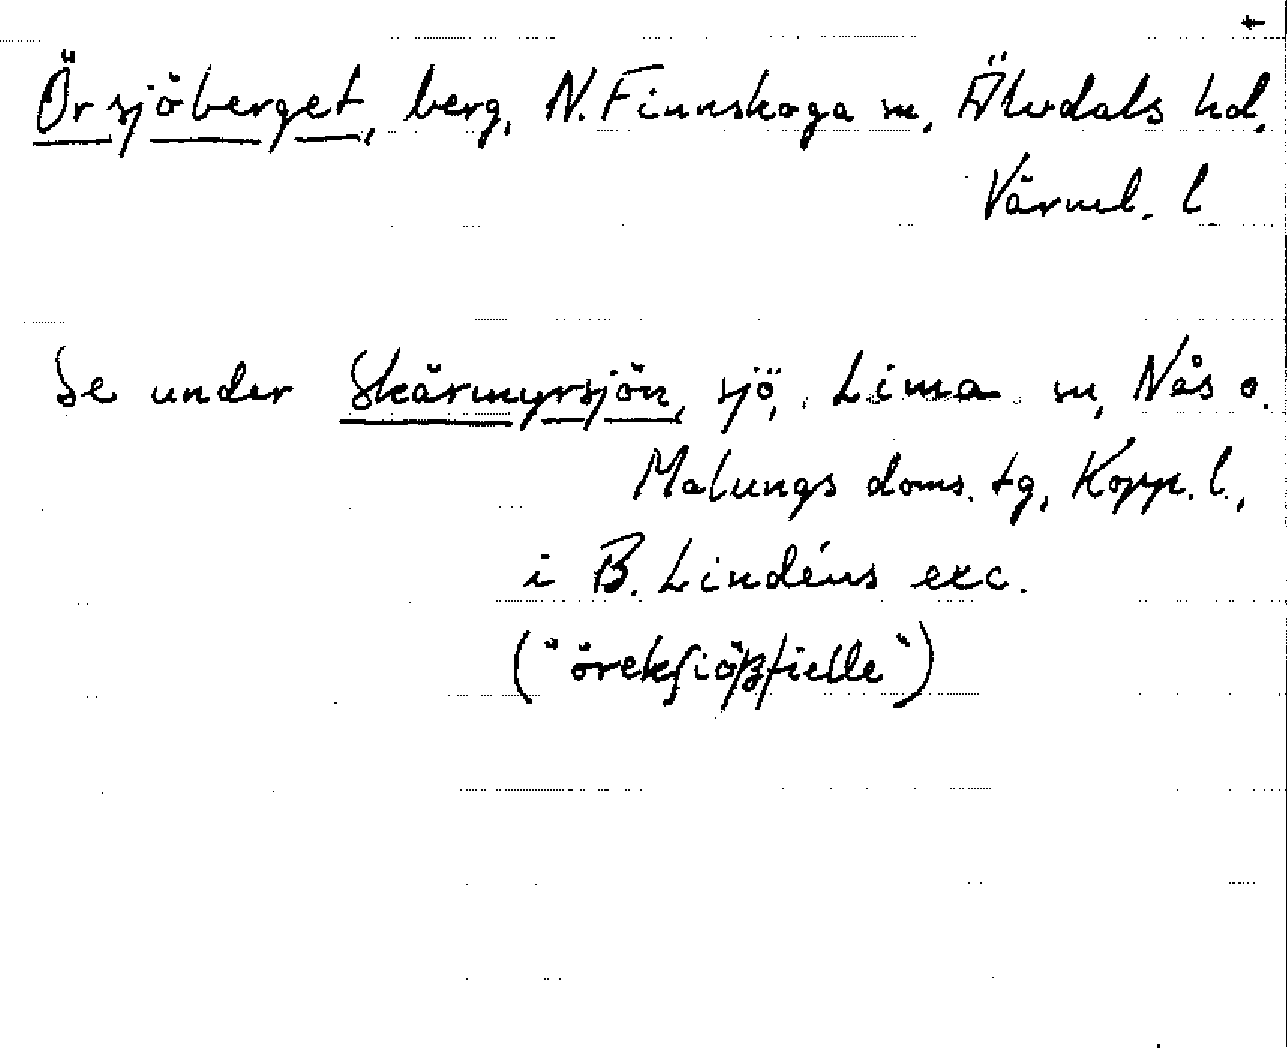 Örsjöberget, berg, N. Finnskoga sn, Älvdals hd,
Värml. l
Se under Skärmyrsjön, sjö, Lima sn, Nås o.
Malungs doms. tg, Kopp. l.,
i B. Lindéns exc.
("örekſiößfielle")